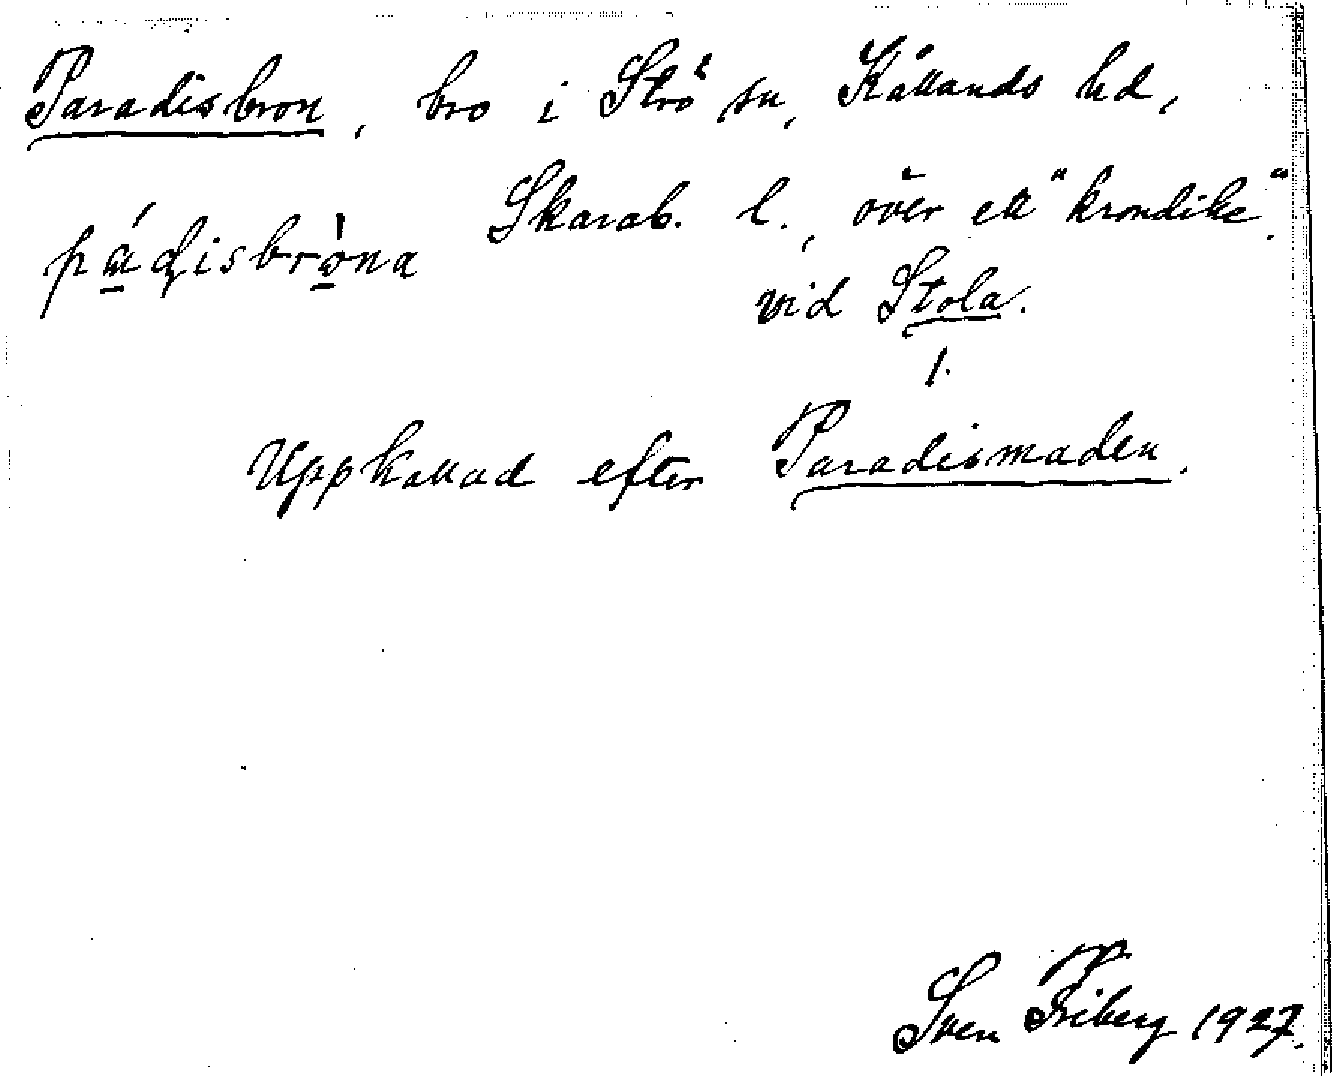 Paradisbron, bro i Strö sn, Kållands hd,
Skarab. l., över ett "krondike"
pádisbròna
vid Stola.
1.
Uppkallad efter Paradismaden.
Sven Friberg 1927.